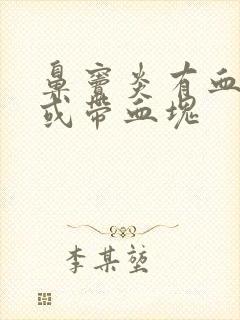 鼻窦炎有血
或带血块
李某堃